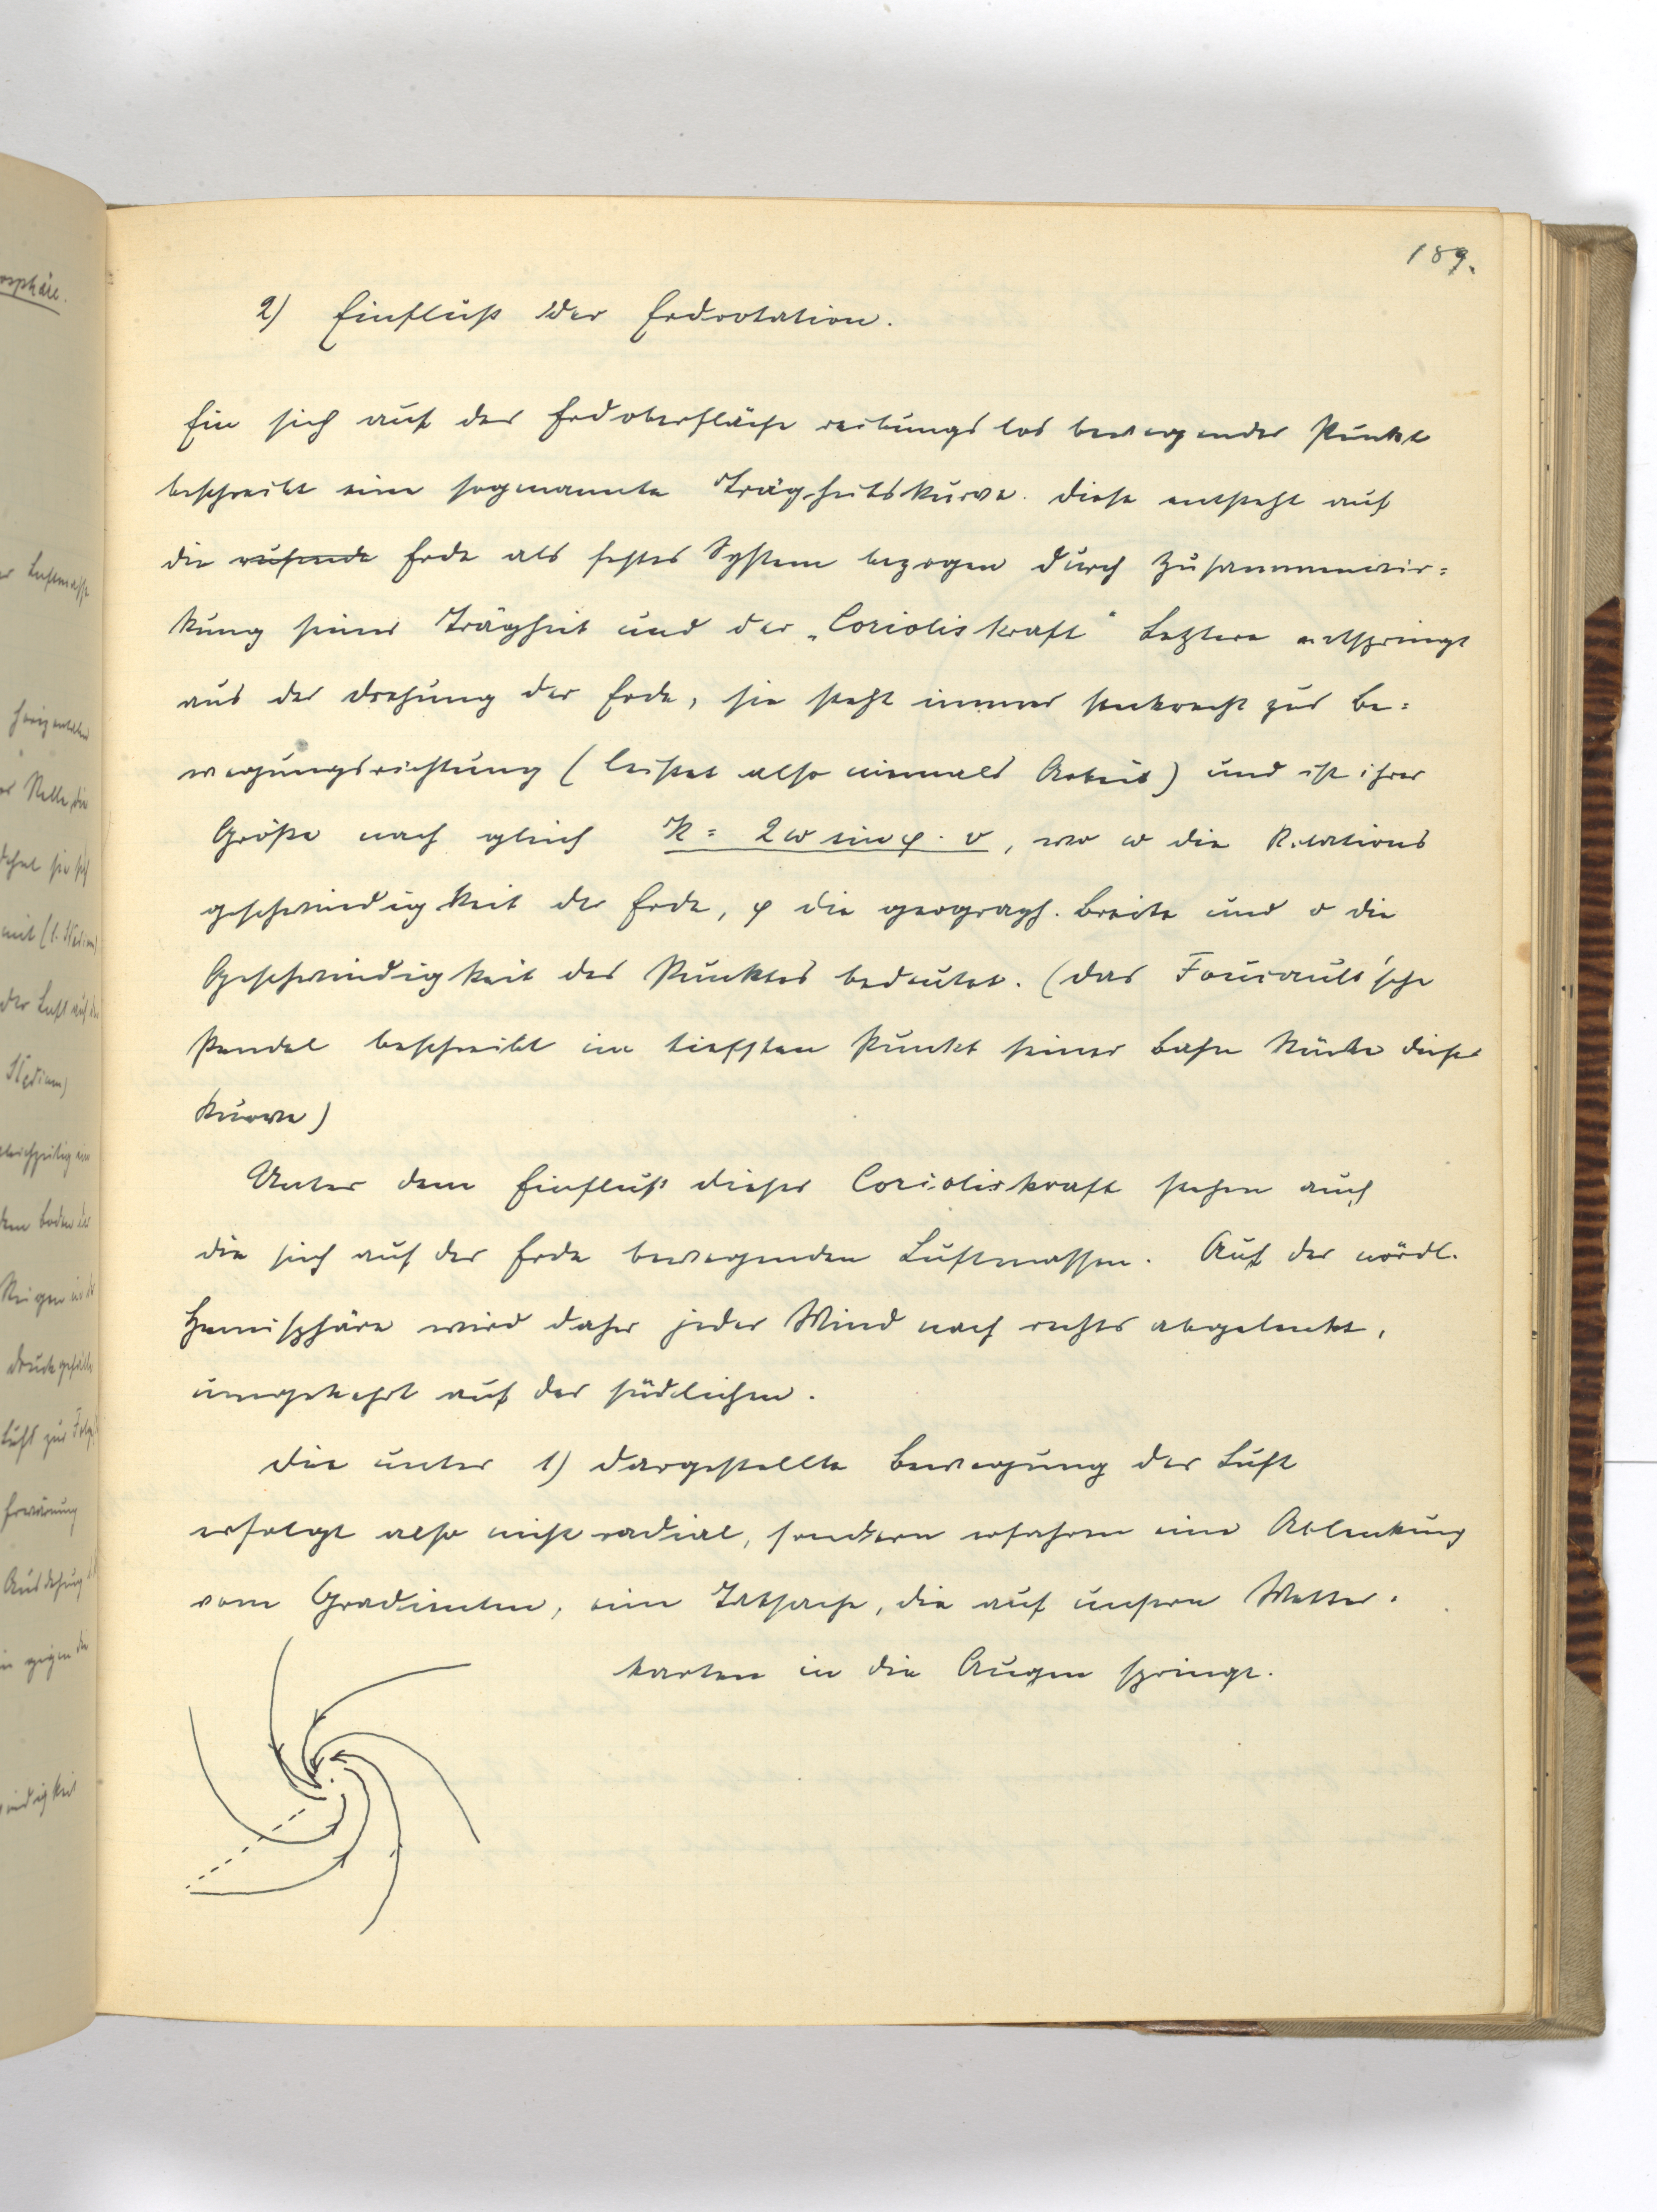 189.
2) Einfluß der Erdrotation.
Ein sich auf der Erdoberfläche reibungslos bewegender Punkt
beschreibt eine sogenannte Trägheitskurve. Diese entsteht auf
die ruhende Erde als festes System bezogen durch Zusammenwir=
kung seiner Trägheit und der „Corioliskraft" Letztere entspringt
aus der Drehung der Erde, sie steht immer senkrecht zur Be=
wegungsrichtung (leistet also niemals Arbeit) und ist ihrer
Größe nach gleich K = 2ω sin φ · v, wo ω die Rotations
geschwindigkeit der Erde, φ die geograph. Breite und v die
Geschwindigkeit des Punktes bedeutet. (Das Foucault'sche
Pendel beschreibt im tiefsten Punkt seiner Bahn Stücke dieser
Kurve)
Unter dem Einfluß dieser Corioliskraft stehen auch
die sich auf der Erde bewegenden Luftmassen. Auf der nördl.
Hemisphäre wird daher jeder Wind nach rechts abgelenkt,
umgekehrt auf der südlichen.
Die unter 1) dargestellte Bewegung der Luft
erfolgt also nicht radial, sondern erfahren eine Ablenkung
vom Gradienten, eine Tatsache, die auf unsern Wetter-
karten in die Augen springt.
osphäre.
Luftmasse
horizontalen
Stelle, die
dehnt sie sich
mit (1. Stadium)
der Luft auf
Stadium)
gleichzeitig ein
dem Boden der
Steigen in der
Druckgefälle
Luft zur Folge
Erwärmung
Ausdehnung
gegen die
indigkeit